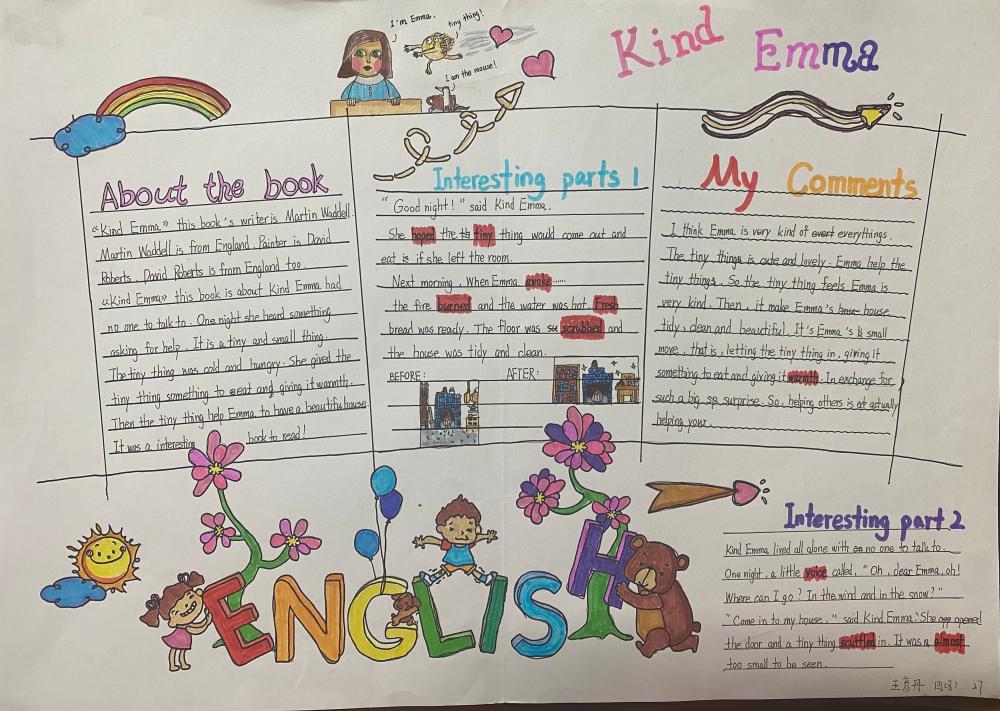 I'm Emma.
tiny thing!
I am the mouse!
Kind Emma
About the book
《Kind Emma》 this book's writer is Martin Waddell.
Martin Waddell is from England. Painter is David
Roberts. David Roberts is from England too.
《Kind Emma》 this book is about Kind Emma had
no one to talk to. One night she heard something
asking for help. It is a tiny and small thing.
The tiny thing was cold and hungry. She gived the
tiny thing something to eat and giving it warmth.
Then the tiny thing help Emma to have a beautiful house.
It was a interesting book to read!
Interesting parts 1
"Good night!" said Kind Emma.
She hoped the tiny thing would come out and
eat is if she left the room.
Next morning, When Emma awoke......
the fire burned and the water was hot. Fresh
bread was ready. The floor was scrubbed and
the house was tidy and clean.
BEFORE: AFTER:
My Comments
I think Emma is very kind of everythings.
The tiny things is cute and lovely. Emma help the
tiny things. So the tiny thing feels Emma is
very kind. Then, it make Emma's house
tidy, clean and beautiful. It's Emma's small
move, that is, letting the tiny thing in, giving it
something to eat and giving it warmth. In exchange for
such a big surprise. So, helping others is actually
helping your
ENGLISH
Interesting part 2
Kind Emma lived all alone with no one to talk to.
One night, a little voice called, "Oh, dear Emma, oh!
Where can I go? In the wind and in the snow?"
"Come in to my house," said Kind Emma. She opened
the door and a tiny thing scuttled in. It was a almost
too small to be seen.
王彦丹 四(8) 27